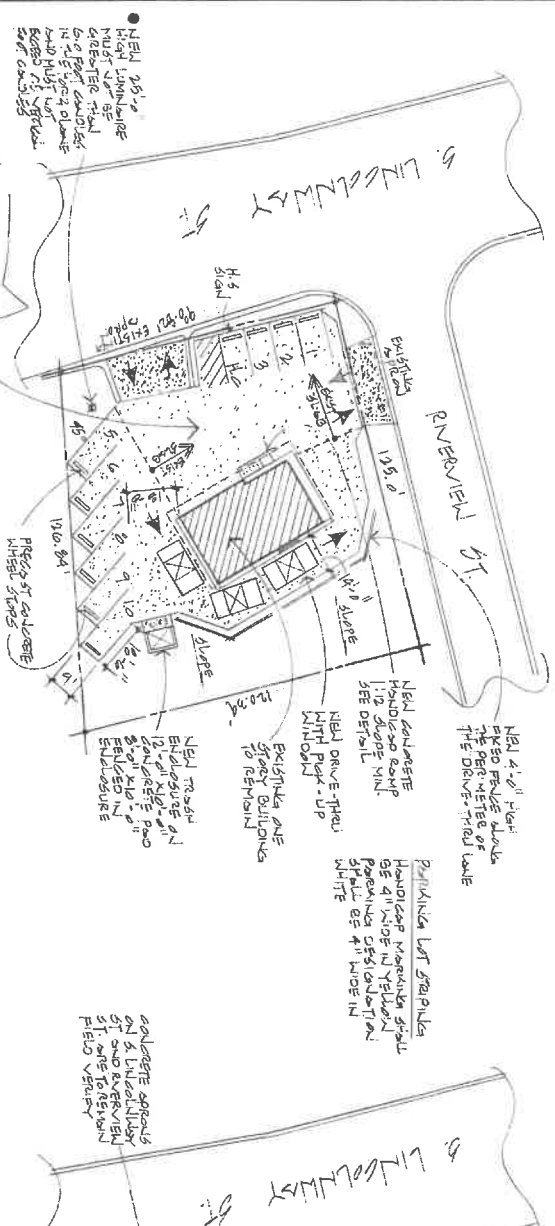 ● NEW 25'-0
HIGH LUMINAIRE
MUST NOT BE
GREATER THAN
6.0 FOOT CANDLES
AND MUST NOT
FOOT CANDLES
S. LINCOLNWAY
ST.
RIVERVIEW ST.
H.C
SIGN
EXISTING
APRON
125.0'
H.C
3
2
1
EXIST
SLOPE
EXIST
SLOPE
45
5
6
7
8
9
10
126.84'
18'
9'
PRECAST CONCRETE
WHEEL STOPS
SLOPE
SLOPE
NEW 4'-0" HIGH
FIXED FENCE ALONG
THE PERIMETER OF
THE DRIVE-THRU LANE
NEW CONCRETE
HANDICAP RAMP
1:12 SLOPE MIN.
SEE DETAIL
NEW DRIVE-THRU
WITH PICK-UP
WINDOW
EXISTING ONE
STORY BUILDING
TO REMAIN
NEW TRASH
ENCLOSURE ON
12'-0" X10'-0"
CONCRETE PAD
8'-0" X10'-0"
FENCED IN
ENCLOSURE
PARKING LOT STRIPING
HANDICAP MARKING SHALL
BE 4" WIDE IN YELLOW
PARKING DESIGNATION
SHALL BE 4" WIDE IN
WHITE
CONCRETE APRONS
ON S. LINCOLNWAY
ST. AND RIVERVIEW
ST. ARE TO REMAIN
FIELD VERIFY
S. LINCOLNWAY
ST.